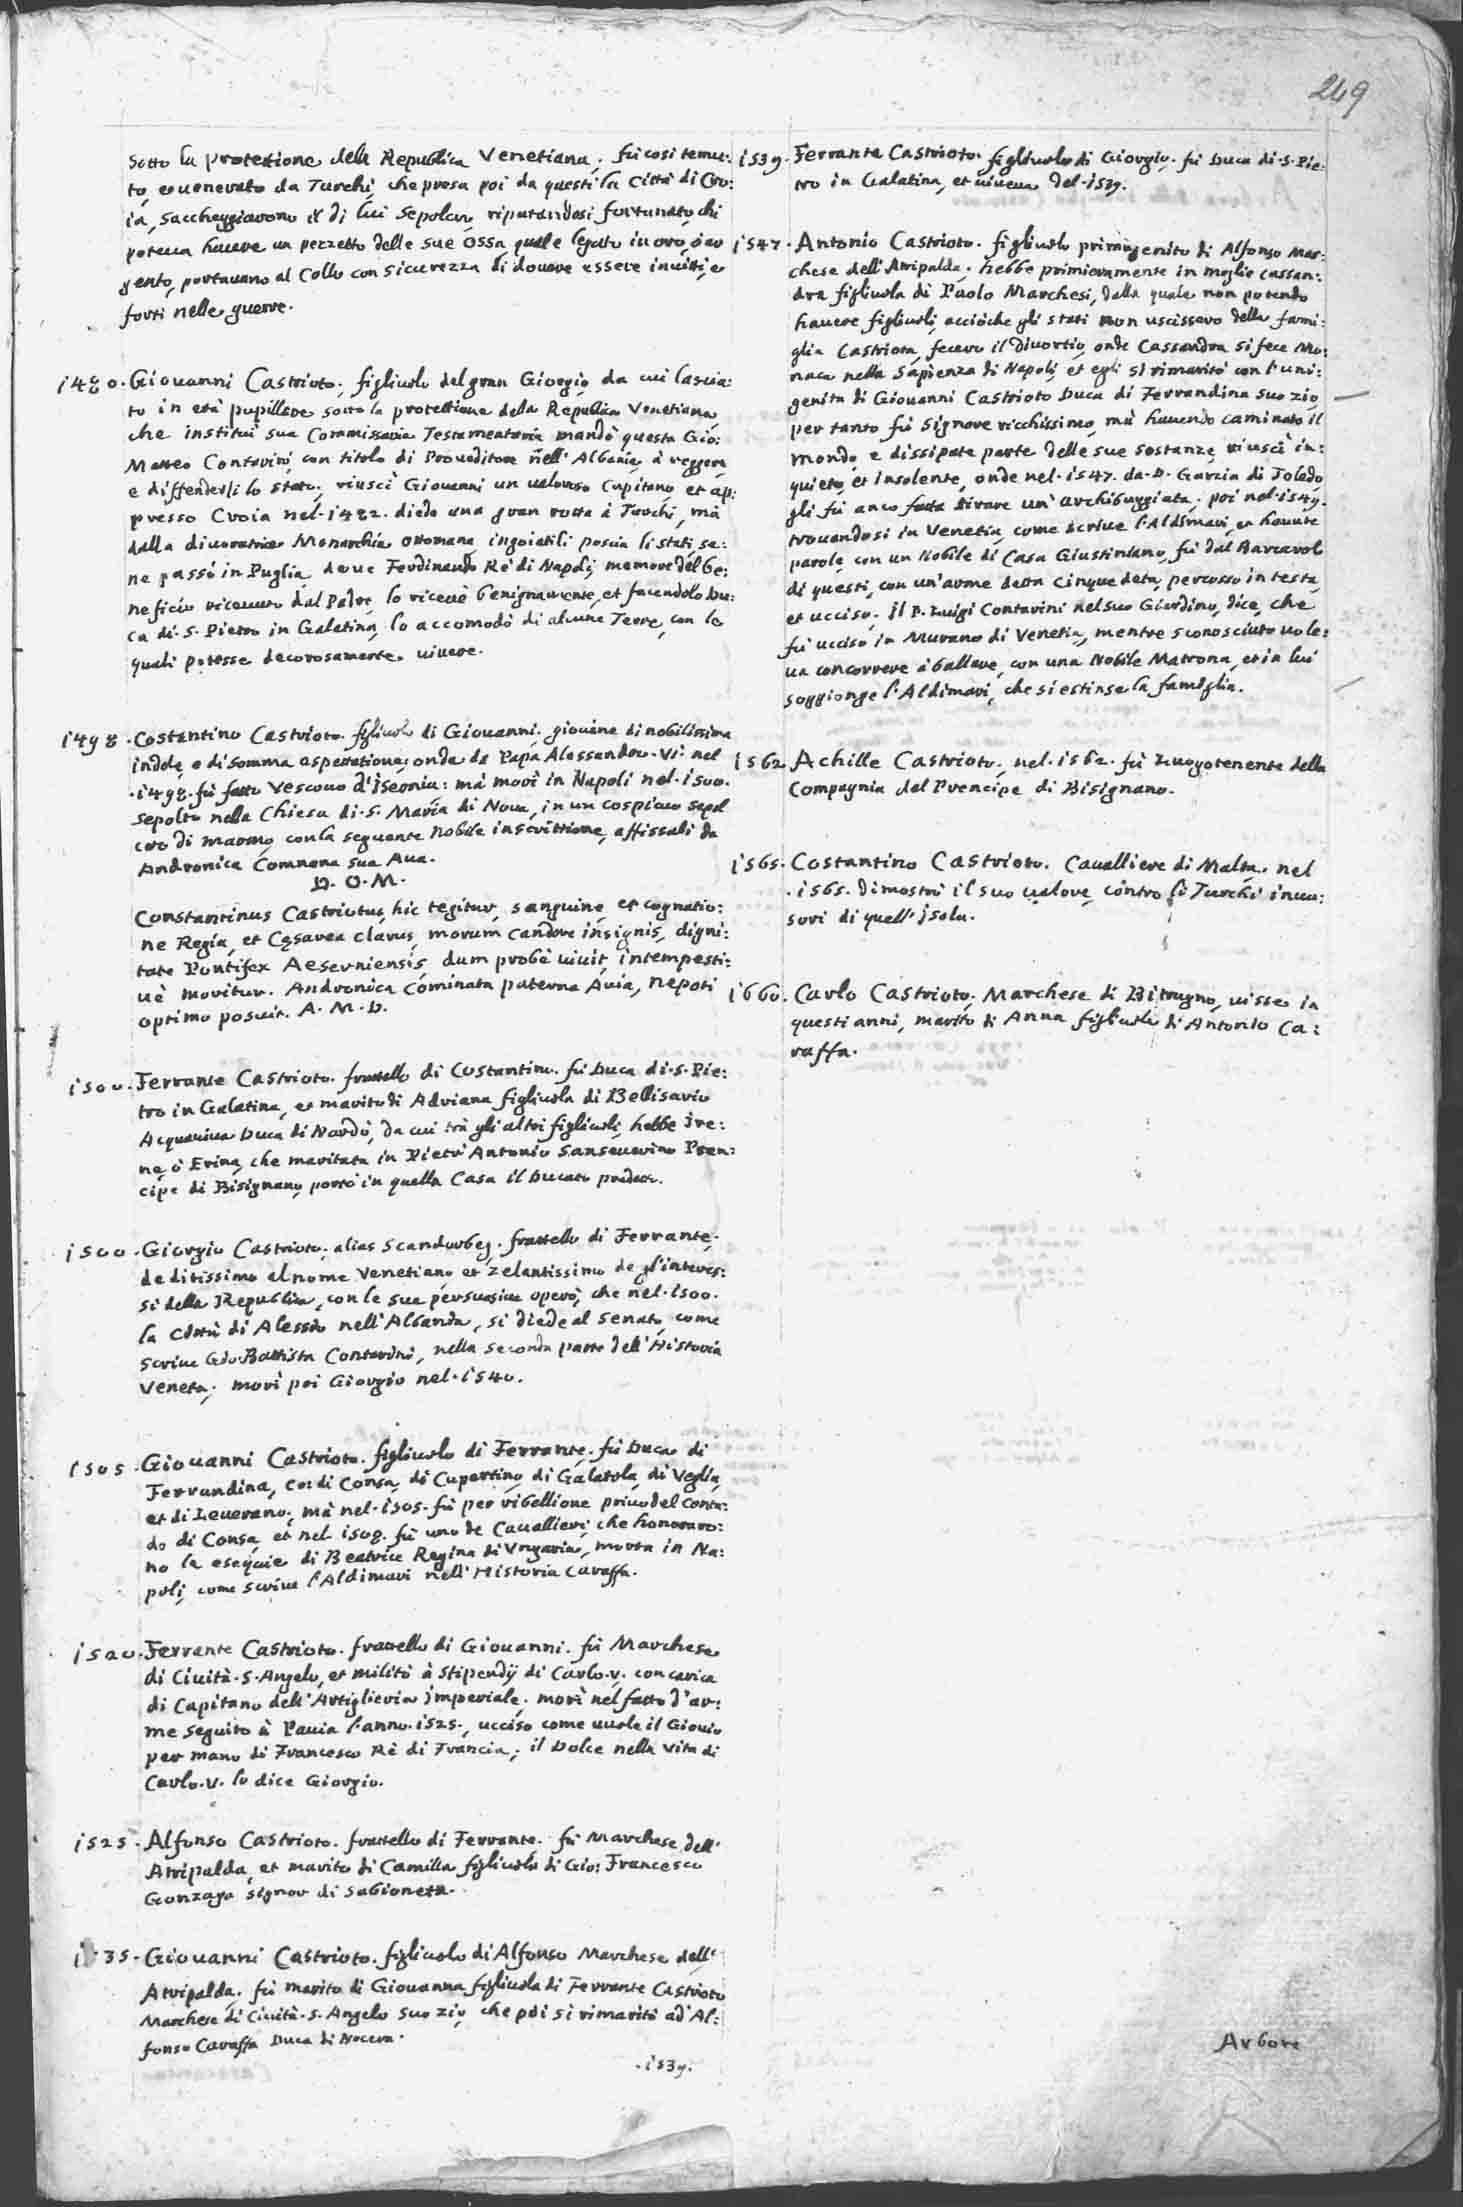 249
sotto la protettione della Republica Venetiana. fu così temu:
to, e uenerato da Turchi, che presa poi da questi la Città di Cro:
ia, saccheggiarono il di lui sepolcro, riputandosi fortunato, chi
poteua hauere un pezzetto delle sue Ossa, quale legato in oro, ò ar
gento, portauano al Collo con sicurezza di douere essere inuitti, e
forti nelle guerre.
1480. Giouanni Castrioto. figliuolo del gran Giorgio, da cui lascia:
to in età pupillare sotto la protettione della Republica Venetiana,
che instituì sua Commissaria Testamentaria mandò questa Gio:
Matteo Contarini, con titolo di Proueditore nell' Albania, à reggere,
e diffenderli lo stato, riuscì Giouanni un ualoroso Capitano, et ap:
presso Croia nel. 1482. diede una gran rotta à Turchi, mà
dalla diuoratrice Monarchia ottomana, ingoiatili poscia li stati, se:
ne passò in Puglia, doue Ferdinando Rè di Napoli, memore del be:
neficio riceuuto dal Padre, lo riceuè benignamente, et facendolo Du:
ca di. S. Pietro in Galatina, lo accomodò di alcune Terre, con le
quali potesse decorosamente uiuere.
1498. Costantino Castrioto. figliuolo di Giouanni. giouane di nobilissima
indole, e di somma aspettatione, onde da Papa Alessandro. VI. nel
. 1498. fù fatto Vescouo d'Isernia: mà morì in Napoli nel. 1500.
sepolto nella Chiesa di. S. Maria di Noua, in un cospicuo sepol
cro di marmo, con la seguente nobile inscrittione, affissali da
Andronica Comnena sua Aua.
D. O. M.
Constantinus Castriotus, hic tegitur, sanguine, et cognatio:
ne Regia, et Cęsarea clarus, morum candore insignis, digni:
tate Pontifex Aeserniensis, dum probè uiuit, intempesti:
uè moritur. Andronica Cominata paterna Auia, nepoti
optimo posuit. A. M. D.
1500. Ferrante Castrioto. fratello di Costantino. fù Duca di. S. Pie:
tro in Galatina, et marito di Adriana figliuola di Bellisario
Acquauiua Duca di Nardò, da cui trà gli altri figliuoli, hebbe Ire:
ne, ò Erina, che maritata in Pietr' Antonio Sanseuerino Pren:
cipe di Bisignano, portò in quella Casa il Ducato predetto.
1500. Giorgio Castrioto. alias Scanderbeg. fratello di Ferrante.
deditissimo al nome Venetiano, et zelantissimo de gl'interes:
si della Republica, con le sue persuasiue operò, che nel. 1500.
la Città di Alessio nell'Albania, si diede al Senato, come
scriue Gio Battista Contarini, nella seconda parte dell' Historia
Veneta. morì poi Giorgio nel. 1540.
1505. Giouanni Castrioto. figliuolo di Ferrante. fù Duca di
Ferrandina, Co: di Consa, di Cupertino, di Galatola, di Veglia,
et di Leuerano, mà nel. 1505. fù per ribellione priuo del Conta:
do di Consa, et nel 1508. fù uno de Cauallieri, che honoraro:
no le esequie di Beatrice Regina di Vngaria, morta in Na:
poli, come scriue l'Aldimari nell' Historia Caraffa.
1520. Ferrante Castrioto. fratello di Giouanni. fù Marchese
di Ciuità. S. Angelo, et militò à stipendij di Carlo. V. con carica
di Capitano dell'Artiglieria Imperiale. morì nel fatto d'ar:
me seguito à Pauia l'anno. 1525., ucciso come uuole il Giouio
per mano di Francesco Rè di Francia. il Dolce nella Vita di
Carlo. V. lo dice Giorgio.
1525. Alfonso Castrioto. fratello di Ferrante. fù Marchese dell'
Atripalda, et marito di Camilla figliuola di Gio: Francesco
Gonzaga signor di Sabioneta.
1535. Giouanni Castrioto. figliuolo di Alfonso Marchese dell'
Atripalda. fù marito di Giouanna figliuola di Ferrante Castrioto
Marchese di Ciuità. S. Angelo suo zio, che poi si rimaritò ad Al:
fonso Caraffa Duca di Nocera.
. 1539.
1539. Ferrante Castrioto. figliuolo di Giorgio. fù Duca di. S. Pie:
tro in Galatina, et uiueua del. 1539.
1547. Antonio Castrioto. figliuolo primogenito di Alfonso Mar:
chese dell'Atripalda. hebbe primieramente in moglie Cassan:
dra figliuola di Paolo Marchesi, dalla quale non potendo
hauere figliuoli, acciòche gli stati non uscissero della fami:
glia Castriota, fecero il Diuortio, onde Cassandra si fece Mo:
naca nella Sapienza di Napoli, et egli si rimaritò con l'uni:
genita di Giouanni Castrioto Duca di Ferrandina suo zio,
per tanto fù Signore ricchissimo, mà hauendo caminato il
mondo, e dissipate parte delle sue sostanze, riuscì in:
quieto, et insolente, onde nel. 1547. da. D. Garzia di Toledo
gli fù anco fatta tirare un' archibuggiata. poi nel. 1549.
trouandosi in Venetia, come scriue l'Aldimari, et hauute
parole con un Nobile di Casa Giustiniano, fù dal Barcarol
di questi, con un'arme detta Cinque deta, percosso in testa,
et ucciso. il P. Luigi Contarini nel suo Giardino, dice, che
fù ucciso in Murano di Venetia, mentre sconosciuto uole:
ua concorrere à ballare, con una Nobile Matrona, et in lui
soggionge l'Aldimari, che si estinse la famiglia.
1562. Achille Castrioto. nel. 1562. fù Luogotenente della
Compagnia del Prencipe di Bisignano.
1565. Costantino Castrioto. Caualliere di Malta. nel
. 1565. dimostrò il suo ualore, contro li Turchi inua:
sori di quell' Isola.
1660. Carlo Castrioto. Marchese di Bitrugno, uisse in
questi anni, marito di Anna figliuola di Antonio Ca:
raffa.
Arbore